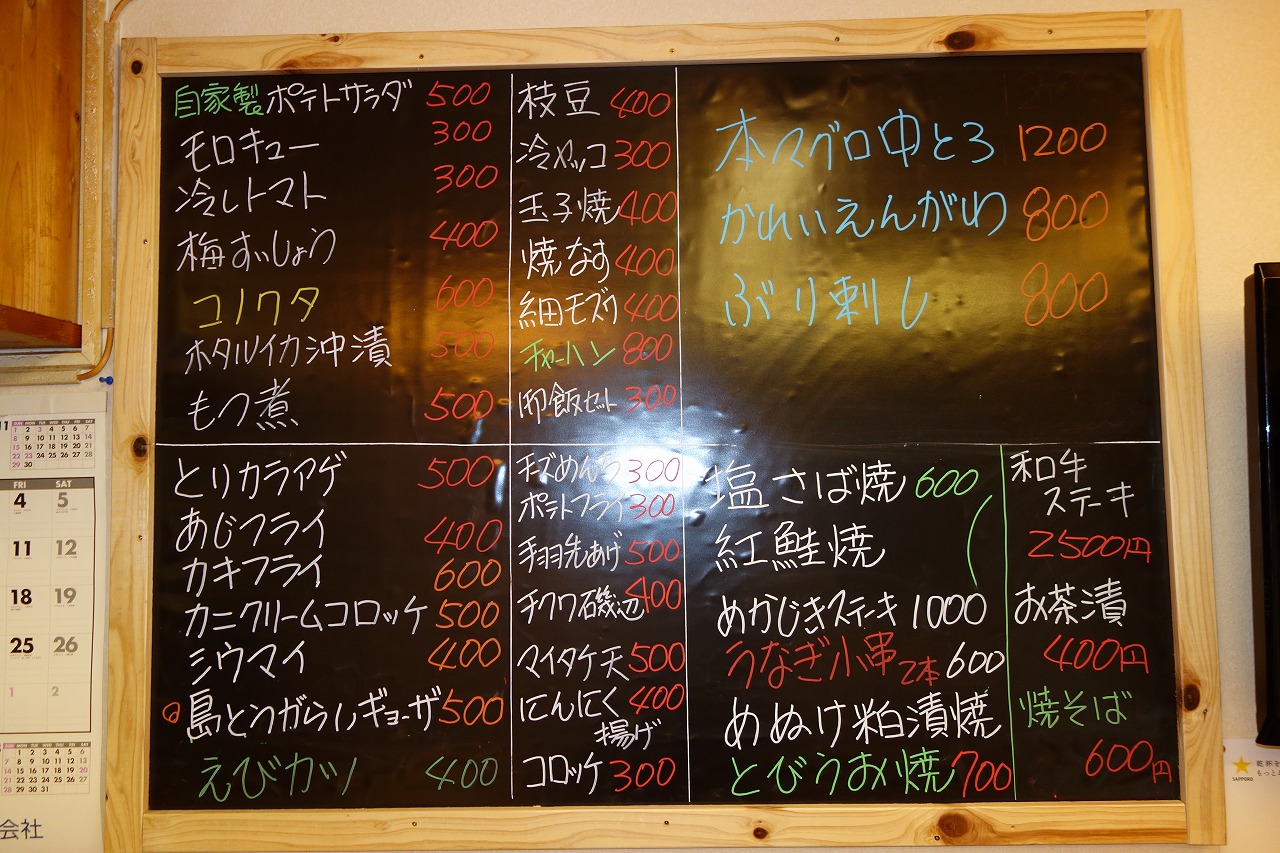 自家製ポテトサラダ 500
モロキュー 300
冷しトマト 300
梅すいしょう 400
コノワタ 600
ホタルイカ沖漬 500
もつ煮 500
枝豆 400
冷ヤッコ 300
玉子焼 400
焼なす 400
細モズク 400
チャーハン 800
卵飯セット 300
本マグロ中とろ 1200
かれいえんがわ 800
ぶり刺し 800
とりカラアゲ 500
あじフライ 400
カキフライ 600
カニクリームコロッケ 500
シウマイ 400
島とうがらしギョーザ 500
えびカツ 400
チーズめんち 300
ポテトフライ 300
手羽先あげ 500
チクワ磯辺 400
マイタケ天 500
にんにく 400
揚げ
コロッケ 300
塩さば焼 600
紅鮭焼
めかじきステーキ 1000
うなぎ小串2本 600
めぬけ粕漬焼
とびうお焼 700
和牛
ステーキ
2500円
お茶漬
400円
焼そば
600円
11
SUN MON TUE WED THU FRI SAT
1 2 3 4 5 6 7
8 9 10 11 12 13 14
15 16 17 18 19 20 21
22 23 24 25 26 27 28
29 30
FRI SAT
4 5
11 12
18 19
25 26
1 2
会社
SAPPORO